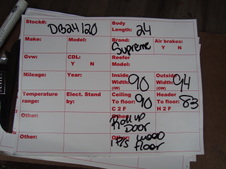 Stock#: DB24120 Body Length: 24
Make: Model: Brand: Supreme Air brakes: Y N
Gvw: CDL: Y N Reefer Model:
Mileage: Year: Inside Width: 90 Outside Width: 94
Temperature range: Elect. Stand by: Ceiling To floor: 90 C 2 F Header To floor: 83 H 2 F
Other: Roll up Door
Other: wood floor